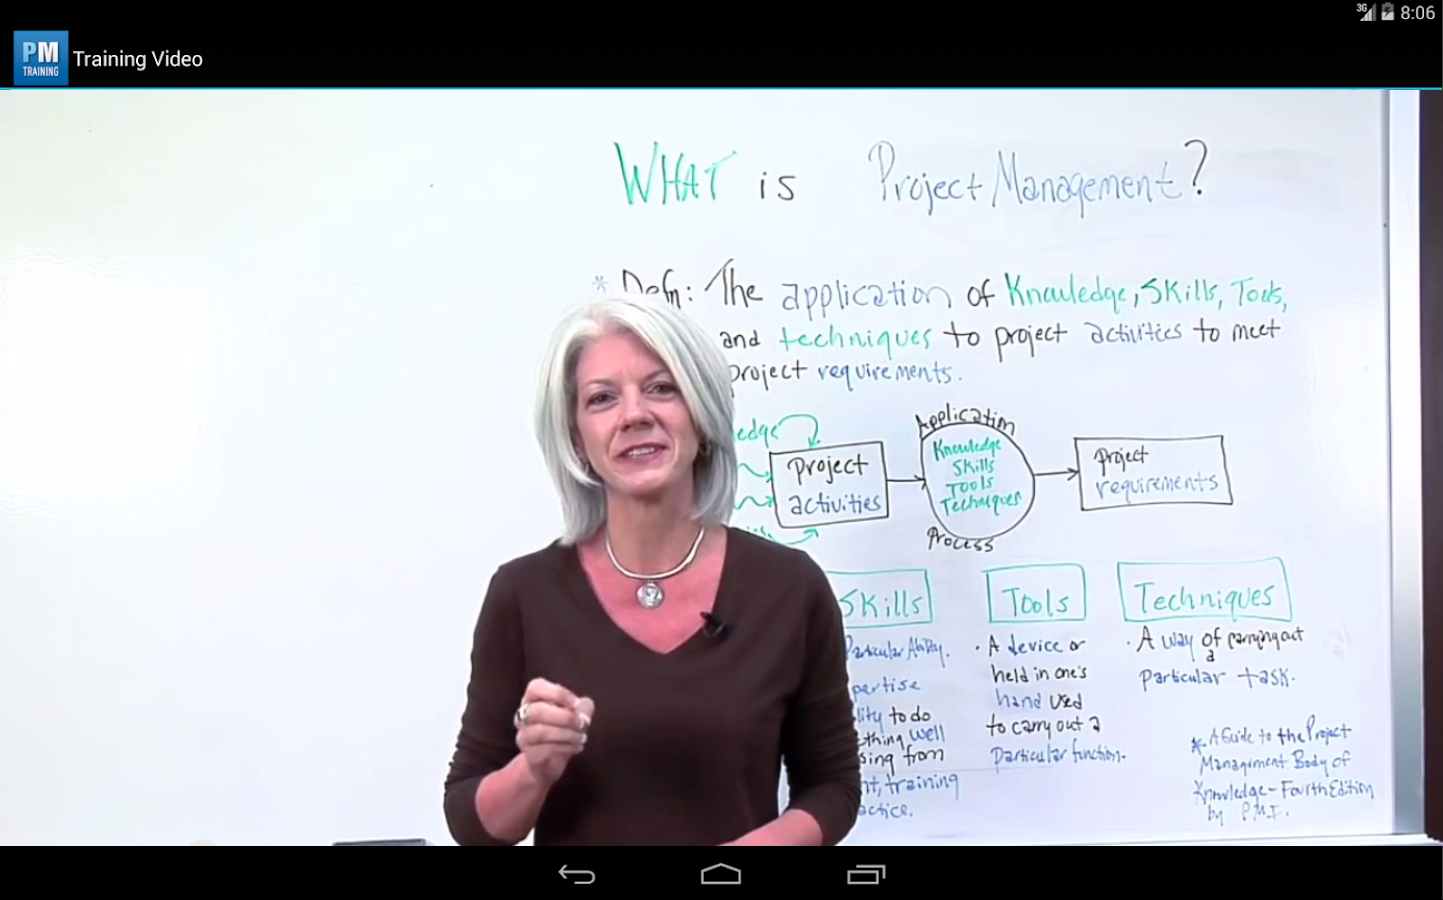 3G 8:06
PM
TRAINING
Training Video
WHAT is Project Management?
* Defn: The application of Knowledge, Skills, Tools,
and techniques to project activities to meet
project requirements.
edge
Project
activities
Application
Knowledge
Skills
Tools
Techniques
Process
project
requirements
Skills
Particular Ability.
pertise
lity to do
thing well
sing from
nt, training
actice.
Tools
· A device or
held in one's
hand used
to carry out a
Particular function.
Techniques
· A way of carrying out
a
particular task.
* A Guide to the Project
Management Body of
Knowledge - Fourth Edition
by P.M.I.